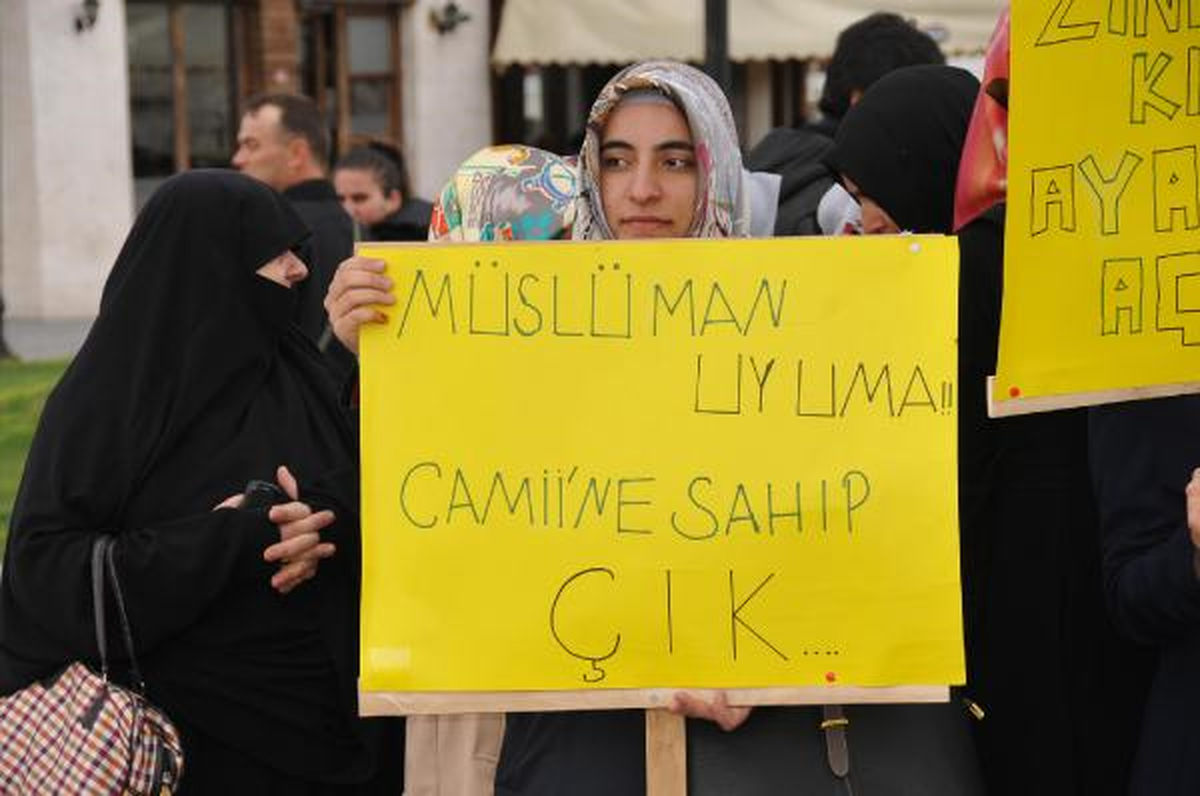 MÜSLÜMAN
UYUMA!!
CAMİİ'NE SAHIP
ÇIK....
AÇ